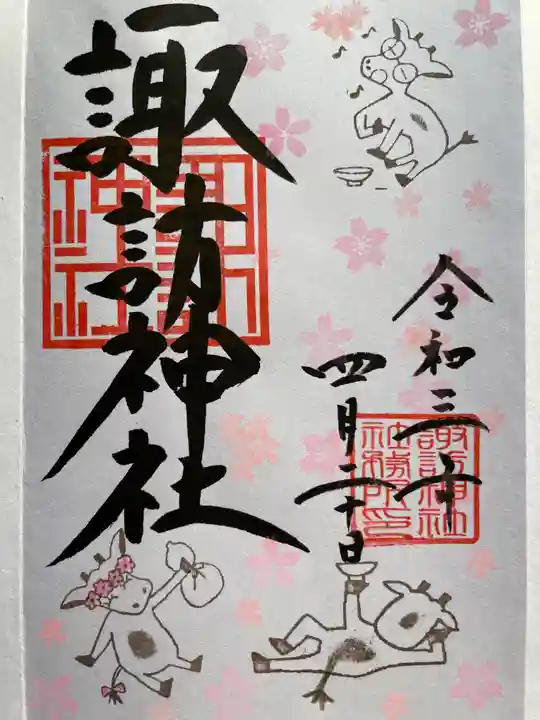 令和三年
四月二十日
諏訪神社
社務所印
諏訪神社
諏訪
神社